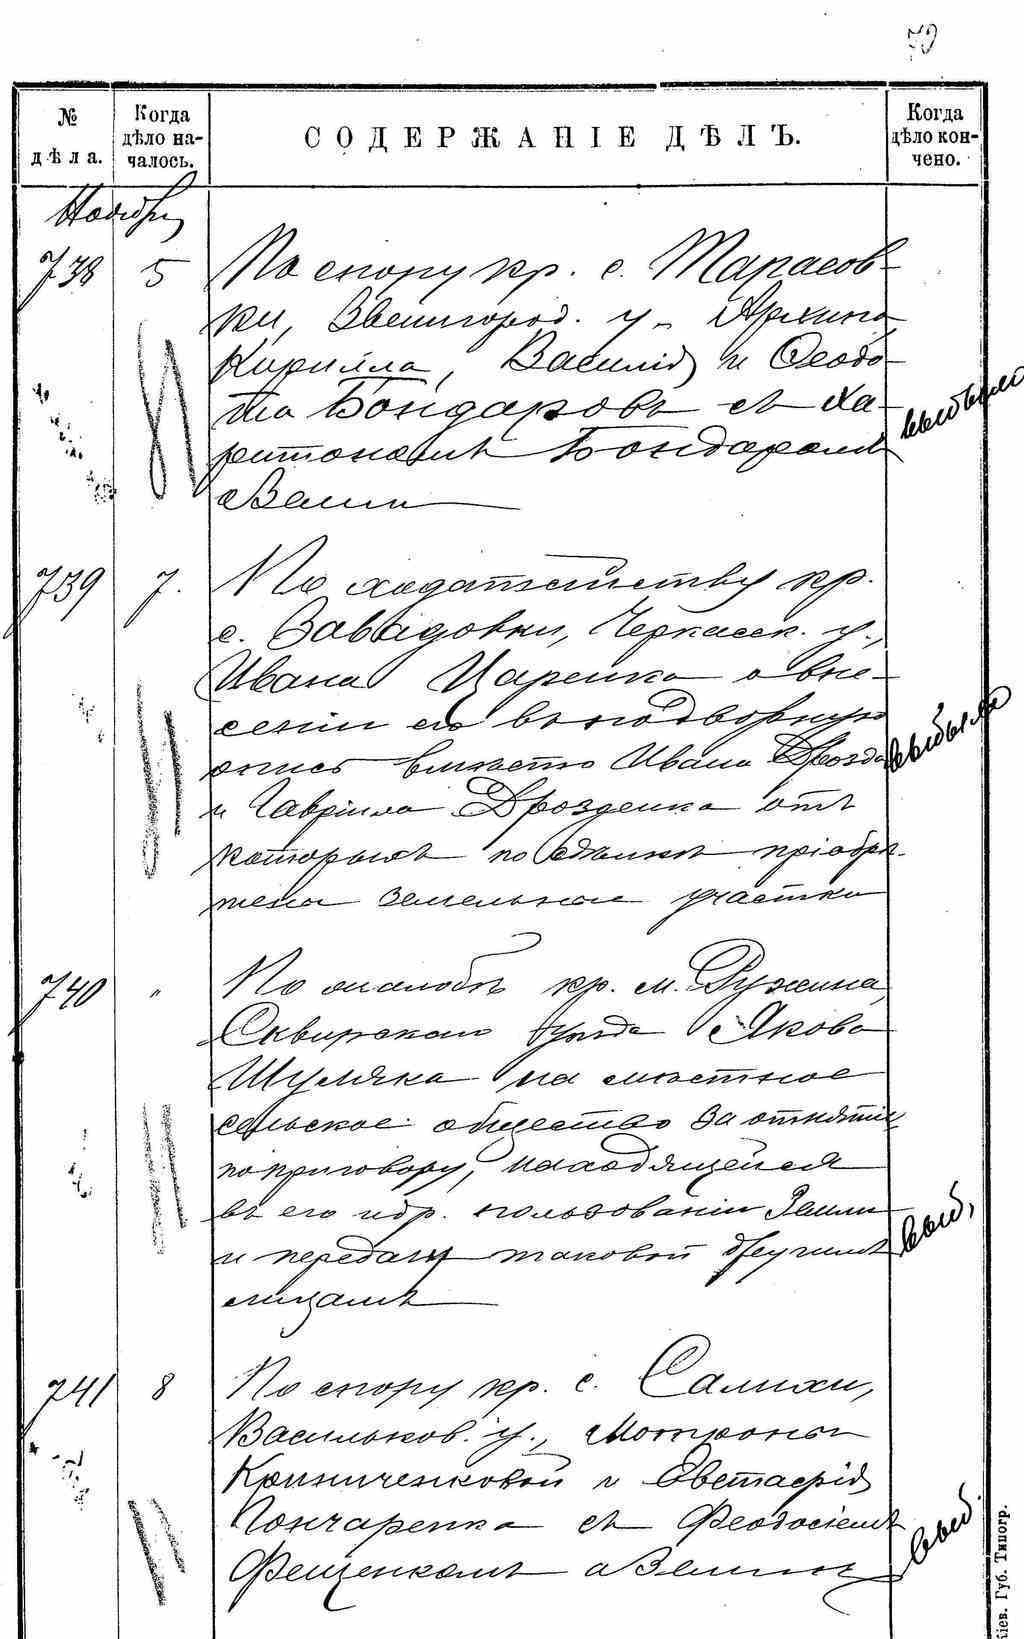 79
№
дѣла.
Когда
дѣло на-
чалось.
СОДЕРЖАНІЕ ДѢЛЪ.
Когда
дѣло кон-
чено.
Ноября
738 5 По спору кр. с. Тарасов-
ки, Звенигород. у. Архипа
Кирилла, Василія и Феодо-
та Бондаровъ съ Ха-
ритономъ Бондаремъ
о земли
выбыло
739 7. По ходатайству кр.
с. Завадовки, Черкасск. у.,
Ивана Царенка о вне-
сеніи его въ подворную
опись вмѣсто Ивана Дрозда
и Гавріила Дрозденка отъ
которыхъ по сдѣлкѣ пріобрѣ-
тены земельные участки
выбыла
740 " По жалобѣ кр. м. Ружина,
Сквирскаго уѣзда Якова
Шуляка на мѣстное
сельское общество за отнятіе
по приговору, находящейся
въ его пользованіи земли
и передачу таковой другимъ
лицамъ
выб.
741 8 По спору кр. с. Салихи,
Васильков. у., Мотроны
Криниченковой и Евстафія
Гончаренка съ Феодосіемъ
Фещенкомъ о земли
выб.
Кіев. Губ. Типогр.